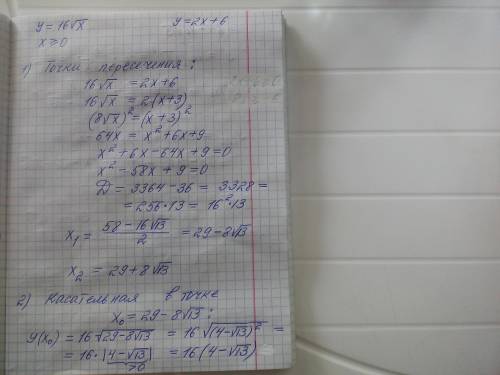 y = 16√x y = 2x + 6
x ≥ 0
1) Точки пересечения:
16√x = 2x + 6
16√x = 2(x + 3)
(8√x)² = (x + 3)²
64x = x² + 6x + 9
x² + 6x - 64x + 9 = 0
x² - 58x + 9 = 0
D = 3364 - 36 = 3328 =
= 256·13 = 16²·13
x₁ = (58 - 16√13)/2 = 29 - 8√13
x₂ = 29 + 8√13
2) Касательная в точке
x₀ = 29 - 8√13:
y(x₀) = 16√(29 - 8√13) = 16√((4 - √13)²) =
= 16·|4 - √13| = 16(4 - √13)
>0